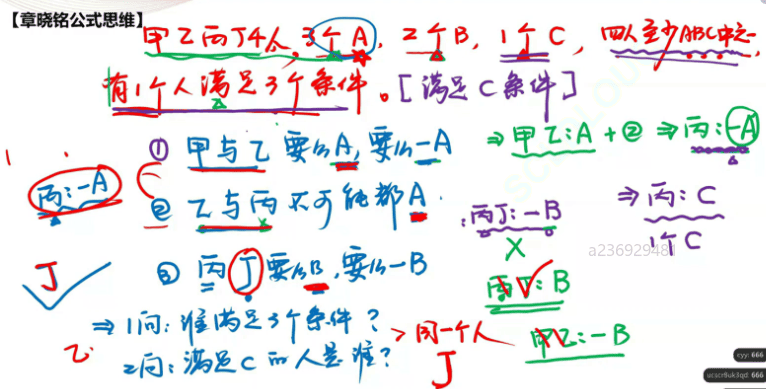 【章晓铭公式思维】
甲乙丙丁4人,3个A,2个B,1个C,四人至少ABC中之一
有1个人满足3个条件。[满足C条件]
① 甲与乙要么A,要么-A ⇒甲乙:A+② ⇒丙:-A
丙:-A
② 乙与丙不可能都A
丙丁:-B
X
⇒丙:C
1个C
a236929481
丁
③ 丙丁要么B,要么-B
丙丁:B
⇒1问:谁满足3个条件?
2问:满足C的人是谁?
>同一个人
丁
甲乙:-B
cyy: 666
ucscr8uk3qd: 666